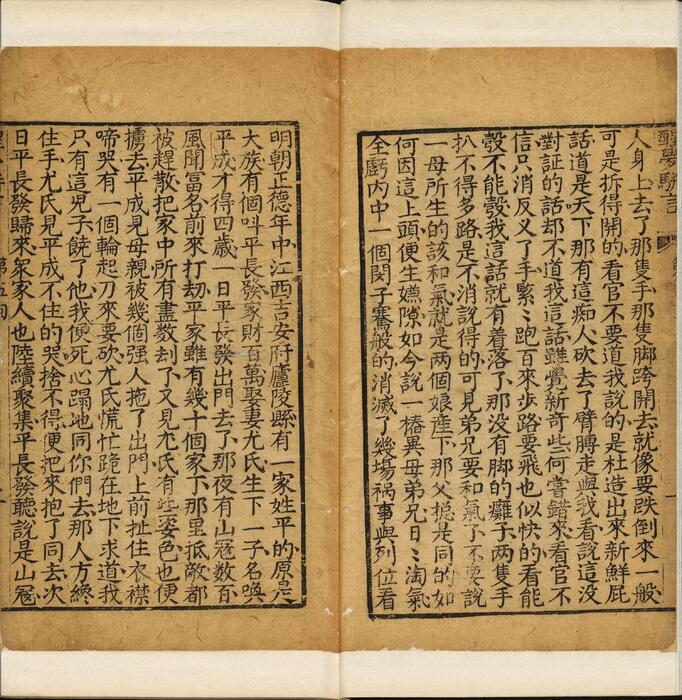 醒夢駢言
人身上去了那隻手那隻脚跨開去就像要跌倒來一般
可是拆得開的看官不要道我說的是杜造出來新鮮屁
話道是天下那有這痴人砍去了臂膊走與我看說這沒
對証的話却不道我這話雖覺新奇些何嘗錯來看官不
信只消反叉了手緊〻跑百來步路要飛也似快的看能
彀不能彀我這話就有着落了那没有脚的癱子兩隻手
扒不得多路是不消說得的可見弟兄要和氣了不要說
一母所生的該和氣就是兩個娘産下那父撼是同的如
何因這上頭便生嫌隙如今說一樁異母弟兄日〻淘氣
全虧内中一個閔子騫般的消滅了幾塲祸事與列位看
明朝正德年中江西吉安府廬陵縣有一家姓平的原是
大族有個呌平長發家財百萬娶妻尤氏生下一子名喚
平成才得四歲一日平長發出門去了那夜有山冦數百
風聞冨名前來打刼平家雖有幾十個家下那里抵敵都
被趕散把家中所有盡数刼了又見尤氏有些姿色也便
擄去平成見母親被幾個强人拖了出門上前扯住衣襟
啼哭有一個輪起刀來要砍尤氏慌忙跪在地下求道我
只有這児子饒了他我便死心蹋地同你們去那人方終
住手尤氏見平成不住的哭捨不得便把來抱了同去次
日平長發歸來衆家人也陸續聚集平長發聽說是山冦
第五回